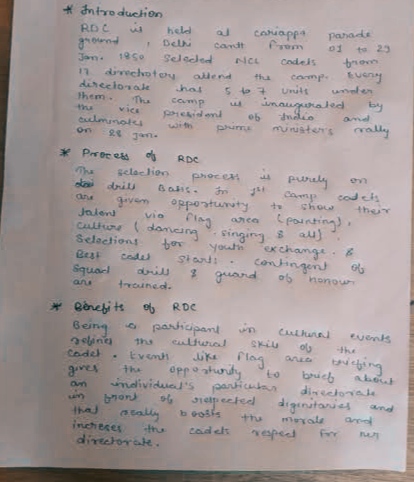 * Introduction
RDC is held at cariappa parade
ground, Delhi cantt from 01 to 29
Jan. 1850 selected NCC cadets from
17 directoters attend the camp. Every
directorate has 5 to 7 units under
them. The camp is inaugurated by
the vice president of India and
culminates with prime minister's rally
on 28 Jan.
* Process of RDC
The selection process is purely on
drill Basis. In 1st camp cadets
are given opportunity to show their
talent via flag area (painting),
culture (dancing singing & all).
Selections for youth exchange &
Best cadet starts. contingent of
Squad drill & guard of honour
are trained.
* Benefits of RDC
Being a participant in cultural events
refines the cultural skill of the
cadet. Events like flag area briefing
gives the opportunity to brief about
an individual's particular directorate
in front of respected diginitaries and
that really boosts the morale and
increses the cadets respect for her
directorate.